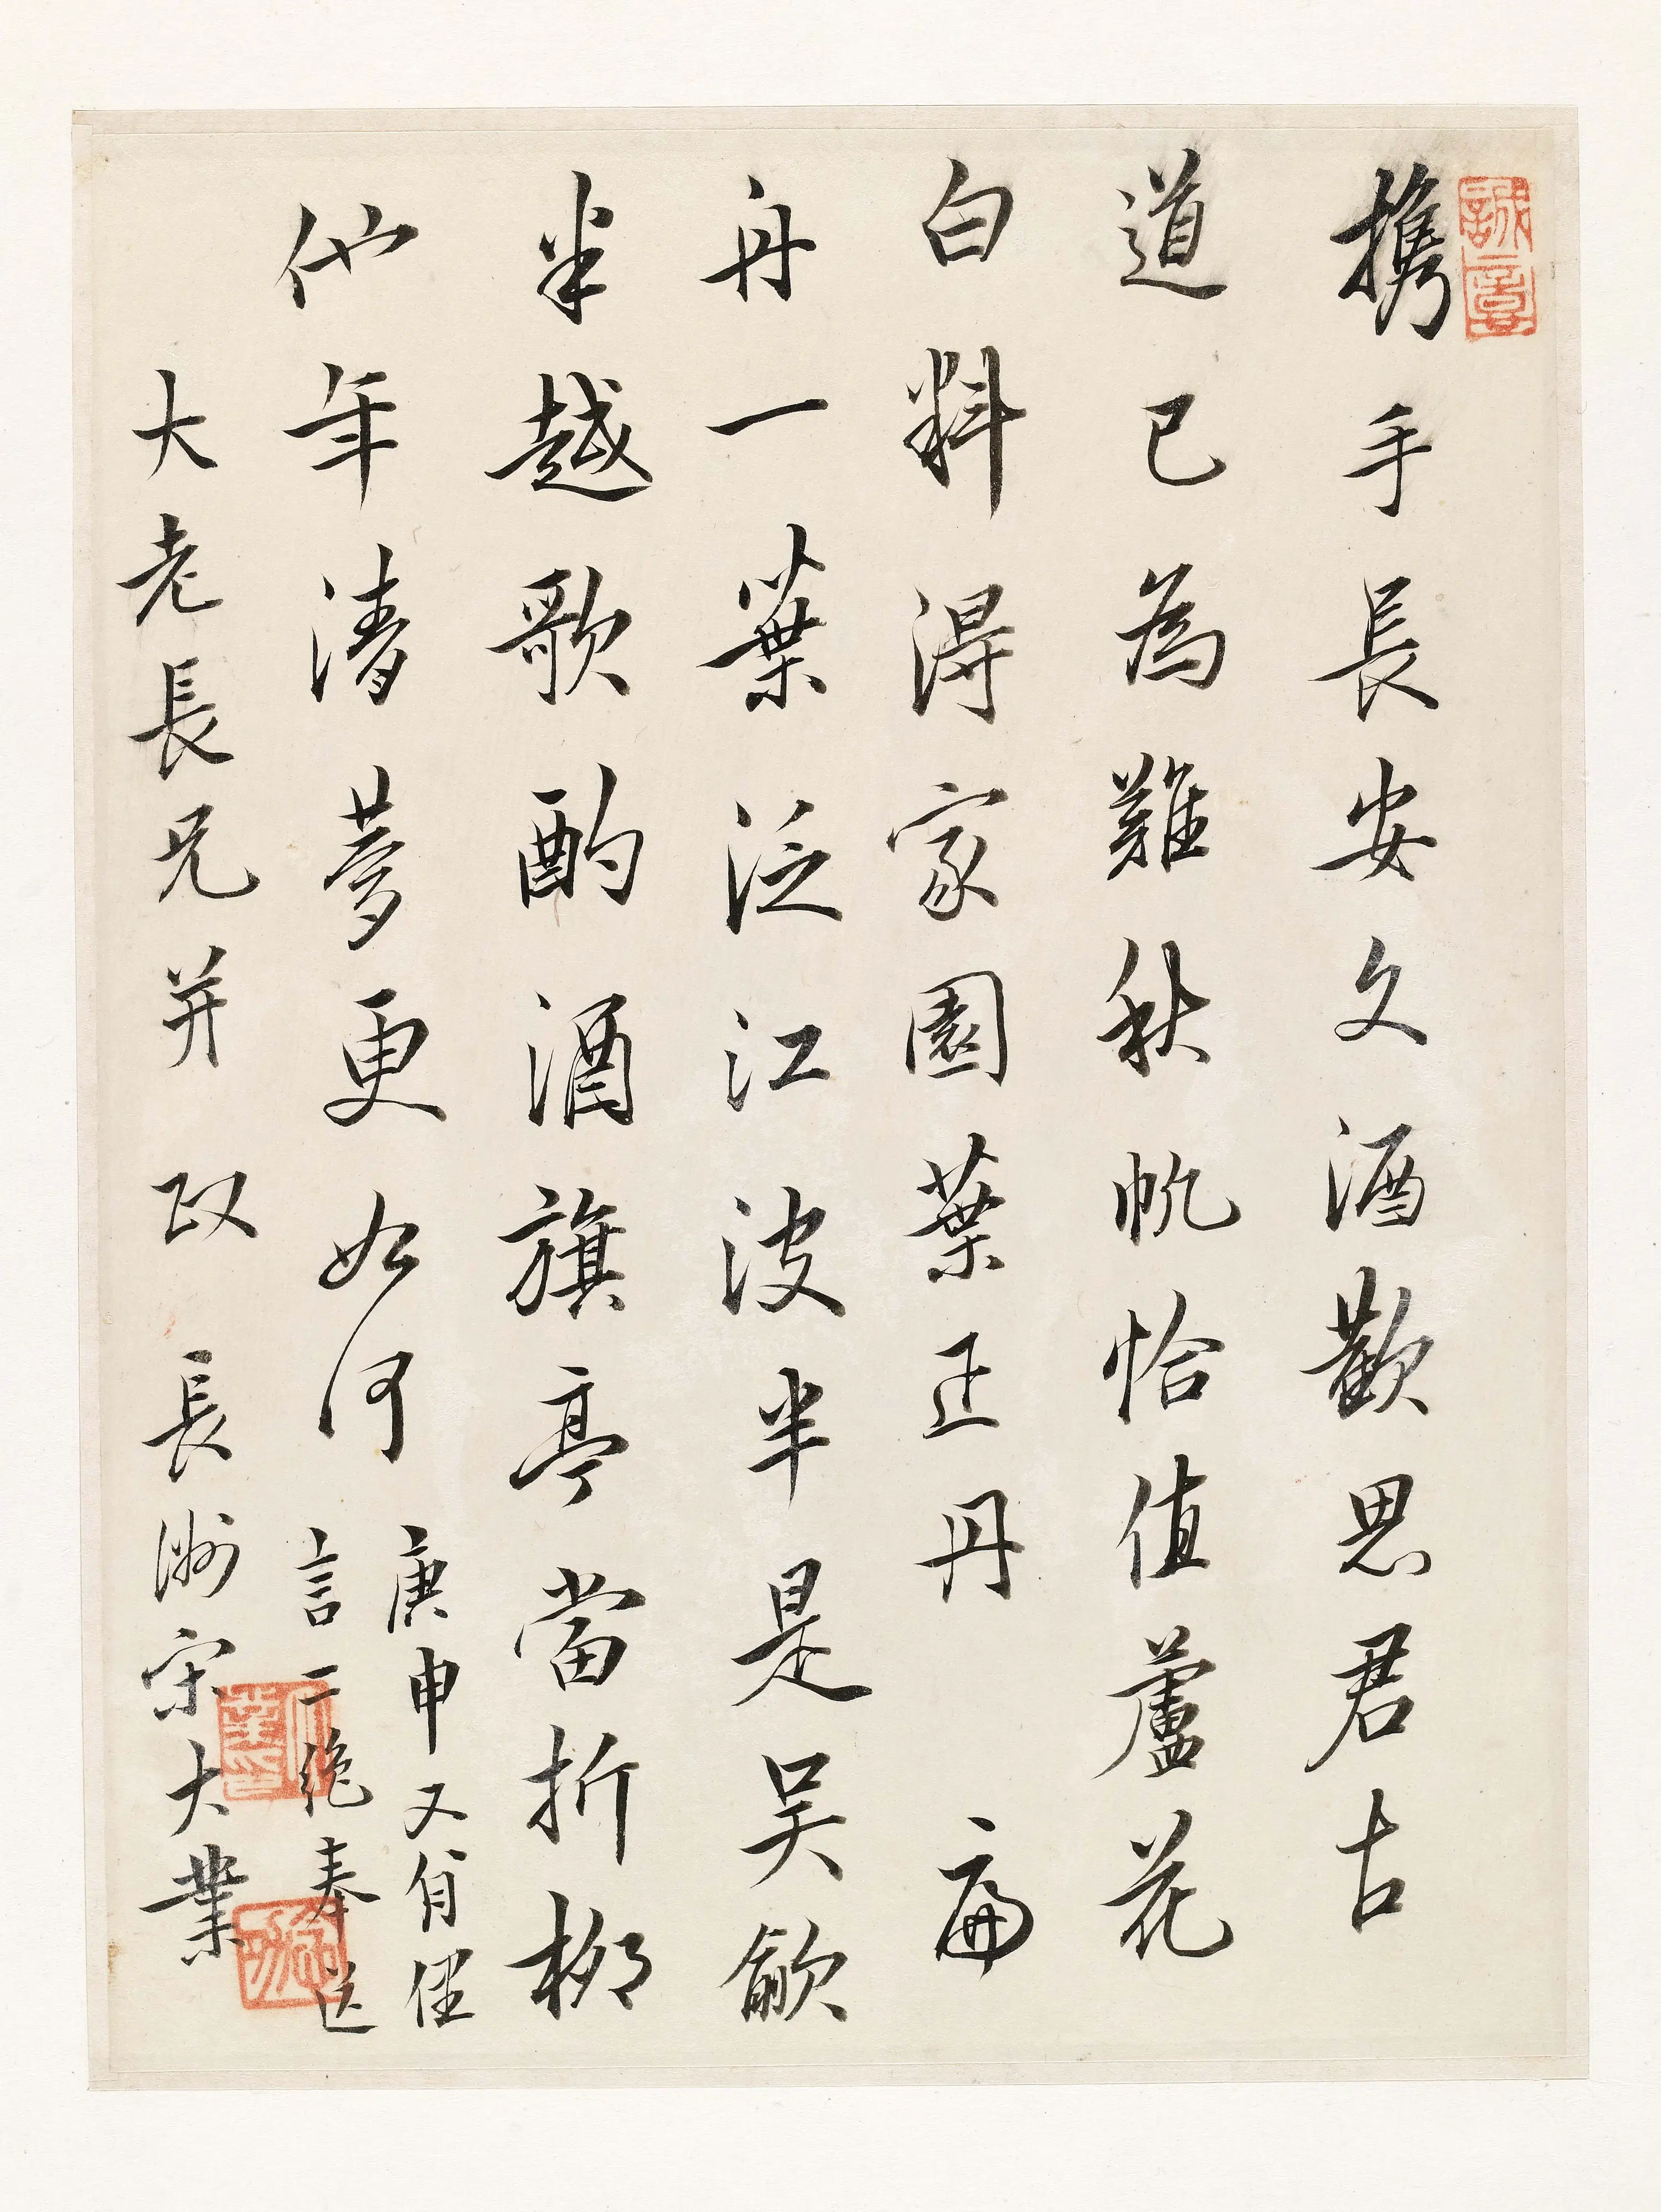 携手長安文酒歡思君古
道已為難秋帆恰值蘆花
白料得家園葉正丹 扁
舟一葉泛江波半是吳歈
半越歌酌酒旗亭當折柳
他年清夢更如何
庚申又八月俚
言二絕奉送
大老長兄并政 長洲宋大業